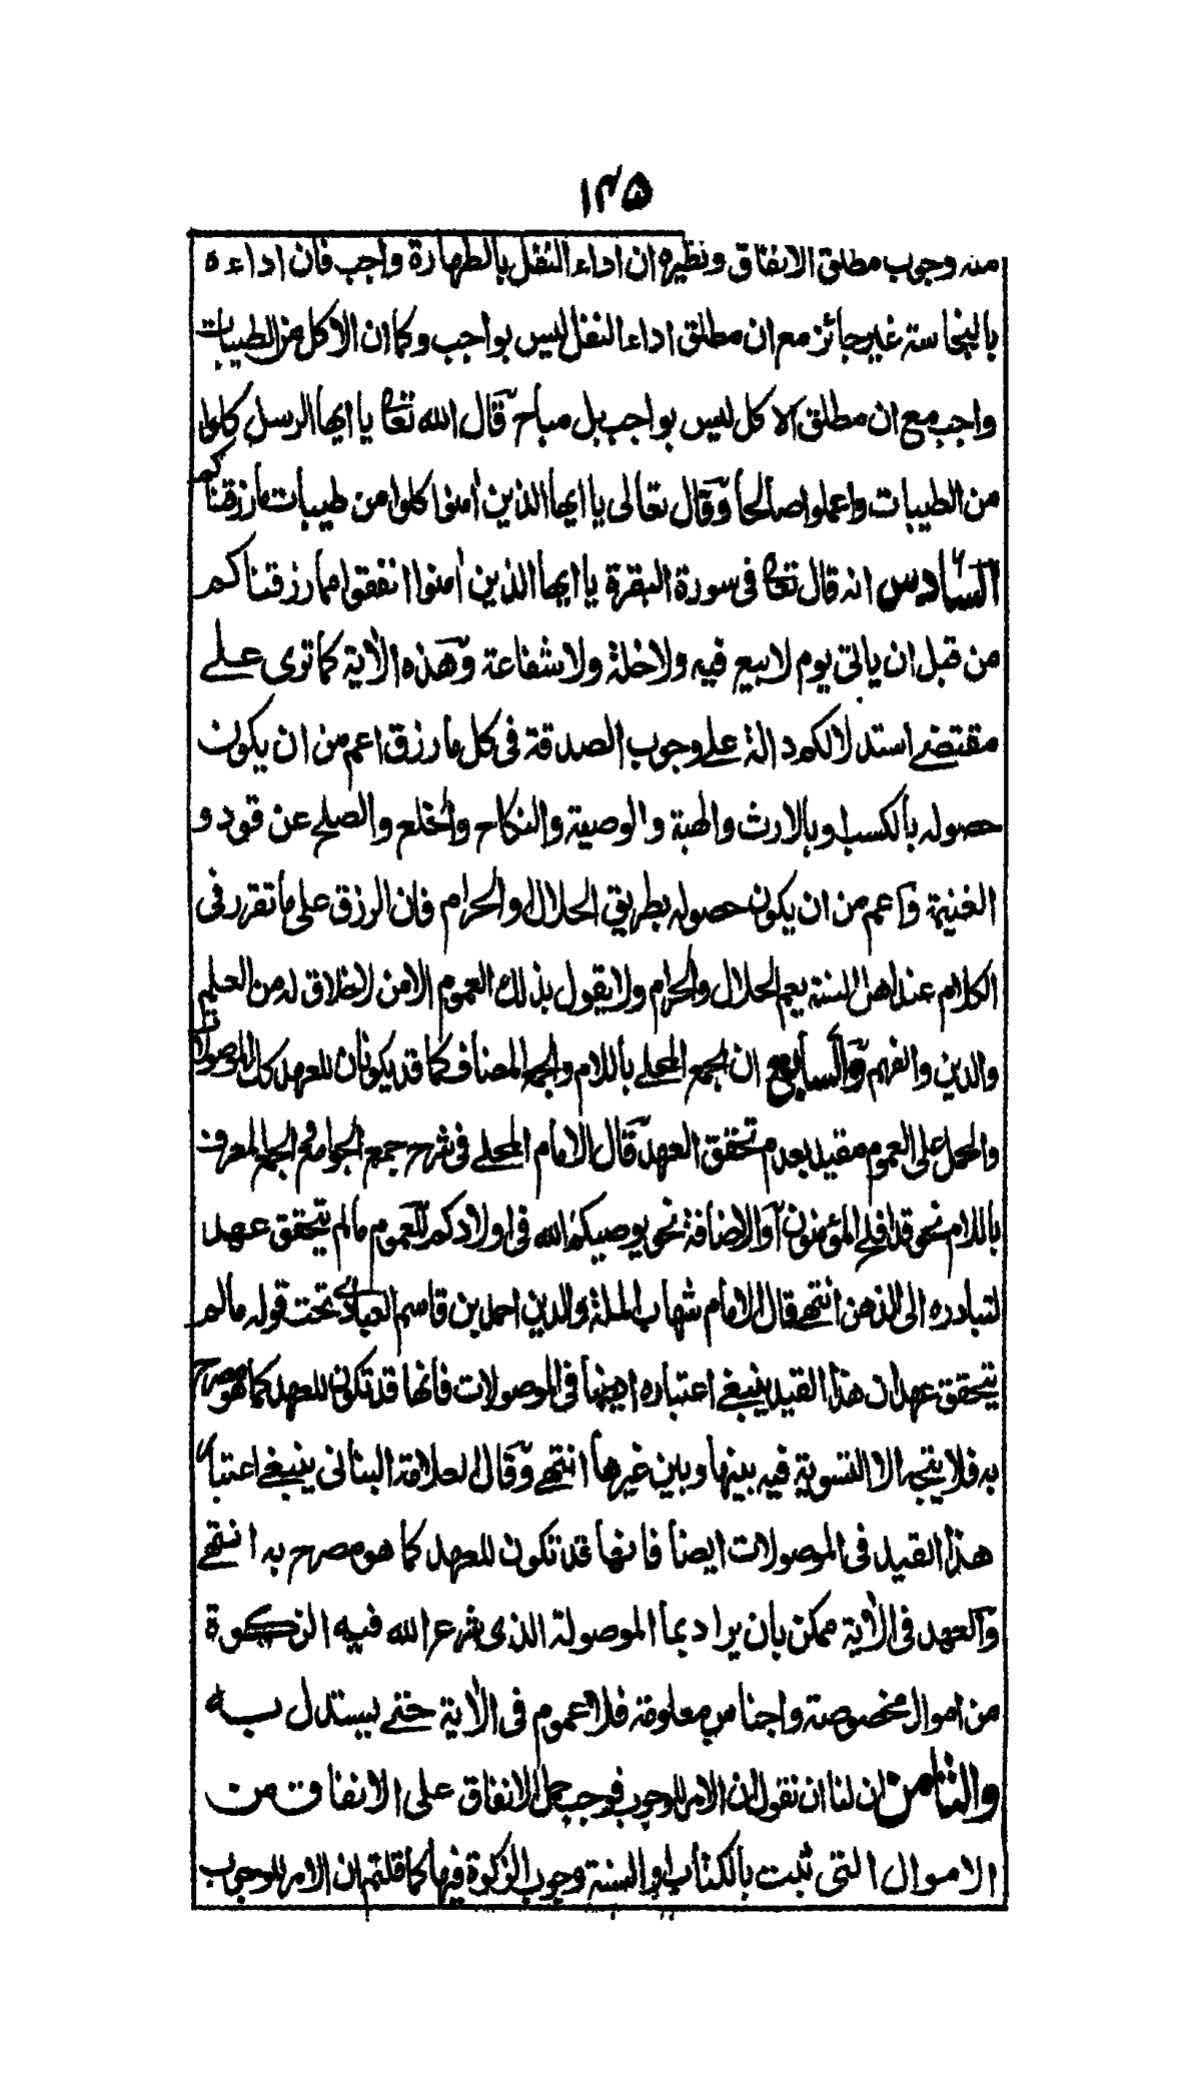 ١٣٥
منه وجوب مطلق الانفاق ونظيره ان اداء النفل بالطهارة واجب فان اداءه
بالنجاسة غير جائز مع ان مطلق اداء النفل ليس بواجب وكما ان الاكل من الطيبات
واجب مع ان مطلق الاكل ليس بواجب بل مباح قال الله تعا يا ايها الرسل كلوا
من الطيبات واعملوا صالحا وقال تعالى يا ايها الذين اٰمنوا كلوا من طيبات ما رزقناكم
السادس انه قال تعا فى سورة البقرة يا ايها الذين اٰمنوا انفقوا مما رزقناكم
من قبل ان ياتى يوم لا بيع فيه ولا خلة ولا شفاعة وهذه الاٰية كما ترى على
مقتضى استدلالكم دالة على وجوب الصدقة فى كل ما رزق اعم من ان يكون
حصوله بالكسب وبالارث والهبة والوصية والنكاح والخلع والصلح عن قود و
الغنيمة واعم من ان يكون حصوله بطريق الحلال والحرام فان الرزق على ما تقرر فى
الكلام عند اهل السنة يعم الحلال والحرام ولا يقول بذلك العموم الا من لا خلاق له من العلم
والدين والفهم والسابع ان الجمع المحلى باللام والجمع المضاف كما قد يكونان للعهد كك الموصولات
والحمل على العموم مقيد بعدم تحقق العهد قال الامام المحلى فى شرح جمع الجوامع والجمع المعرف
باللام نحو قد افلح المؤمنون او الاضافة نحو يوصيكم الله فى اولادكم للعموم ما لم يتحقق عهد
لتبادره الى الذهن انتهى قال الامام شهاب الملة والدين احمد بن قاسم العبادى تحت قوله ما لم
يتحقق عهد ان هذا القيد ينبغى اعتباره ايضا فى الموصولات فانها قد تكون للعهد كما هو مصرح
به فلا يتجه الا التسوية فيه بينها وبين غيرها انتهى وقال العلامة البنانى ينبغى اعتبار
هذا القيد فى الموصولات ايضا فانها قد تكون للعهد كما هو مصرح به انتهى
والعهد فى الاٰية ممكن بان يراد بما الموصولة الذى شرع الله فيه الزكوة
من اموال مخصوصة واجناس معلومة فلا عموم فى الاٰية حتى يستدل به
والثامن ان لنا ان نقول ان الامر للوجوب فوجب حمل الانفاق على الانفاق من
الاموال التى ثبت بالكتاب والسنة وجوب الزكوة فيها كما قلتم ان الامر للوجوب